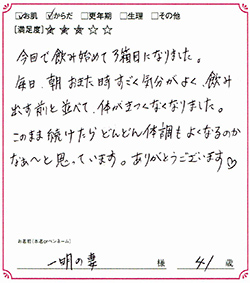 ☑お肌 ☑からだ □更年期 □生理 □その他
[満足度]★★★☆☆
今日で飲み始めて3箱目になりました。
毎日、朝おきた時すごく気分がよく、飲み
出す前と並べて、体がきつくなくなりました。
このまま続けたらどんどん体調もよくなるのか
なぁ〜と思っています。ありがとうございます♡
お名前(本名orペンネーム)
一明の妻 様 41 歳